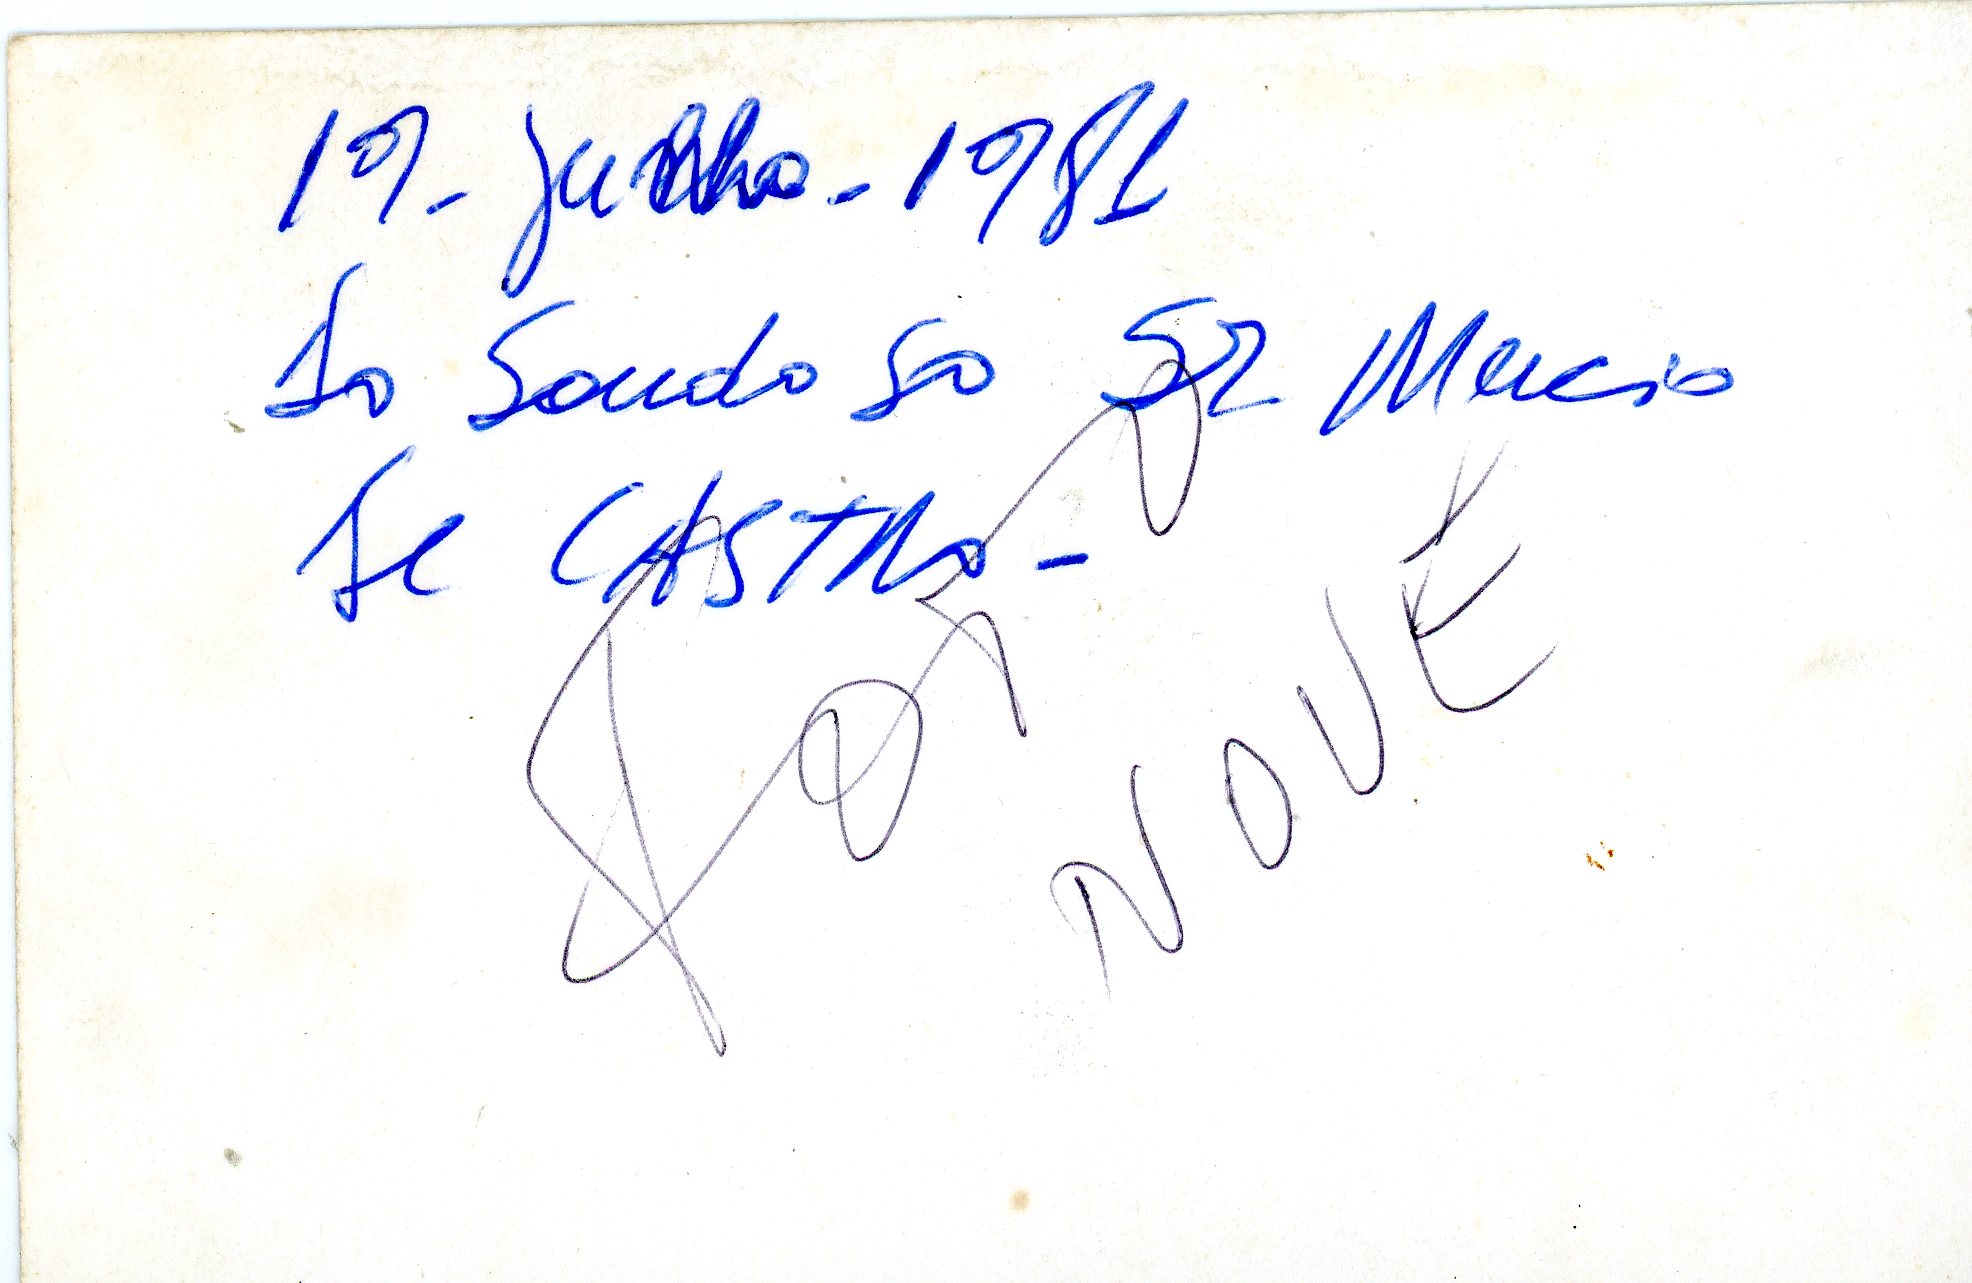 19-Julho-1981
Do Saudoso SR Mucio
De CASTRO-
NOVÉ